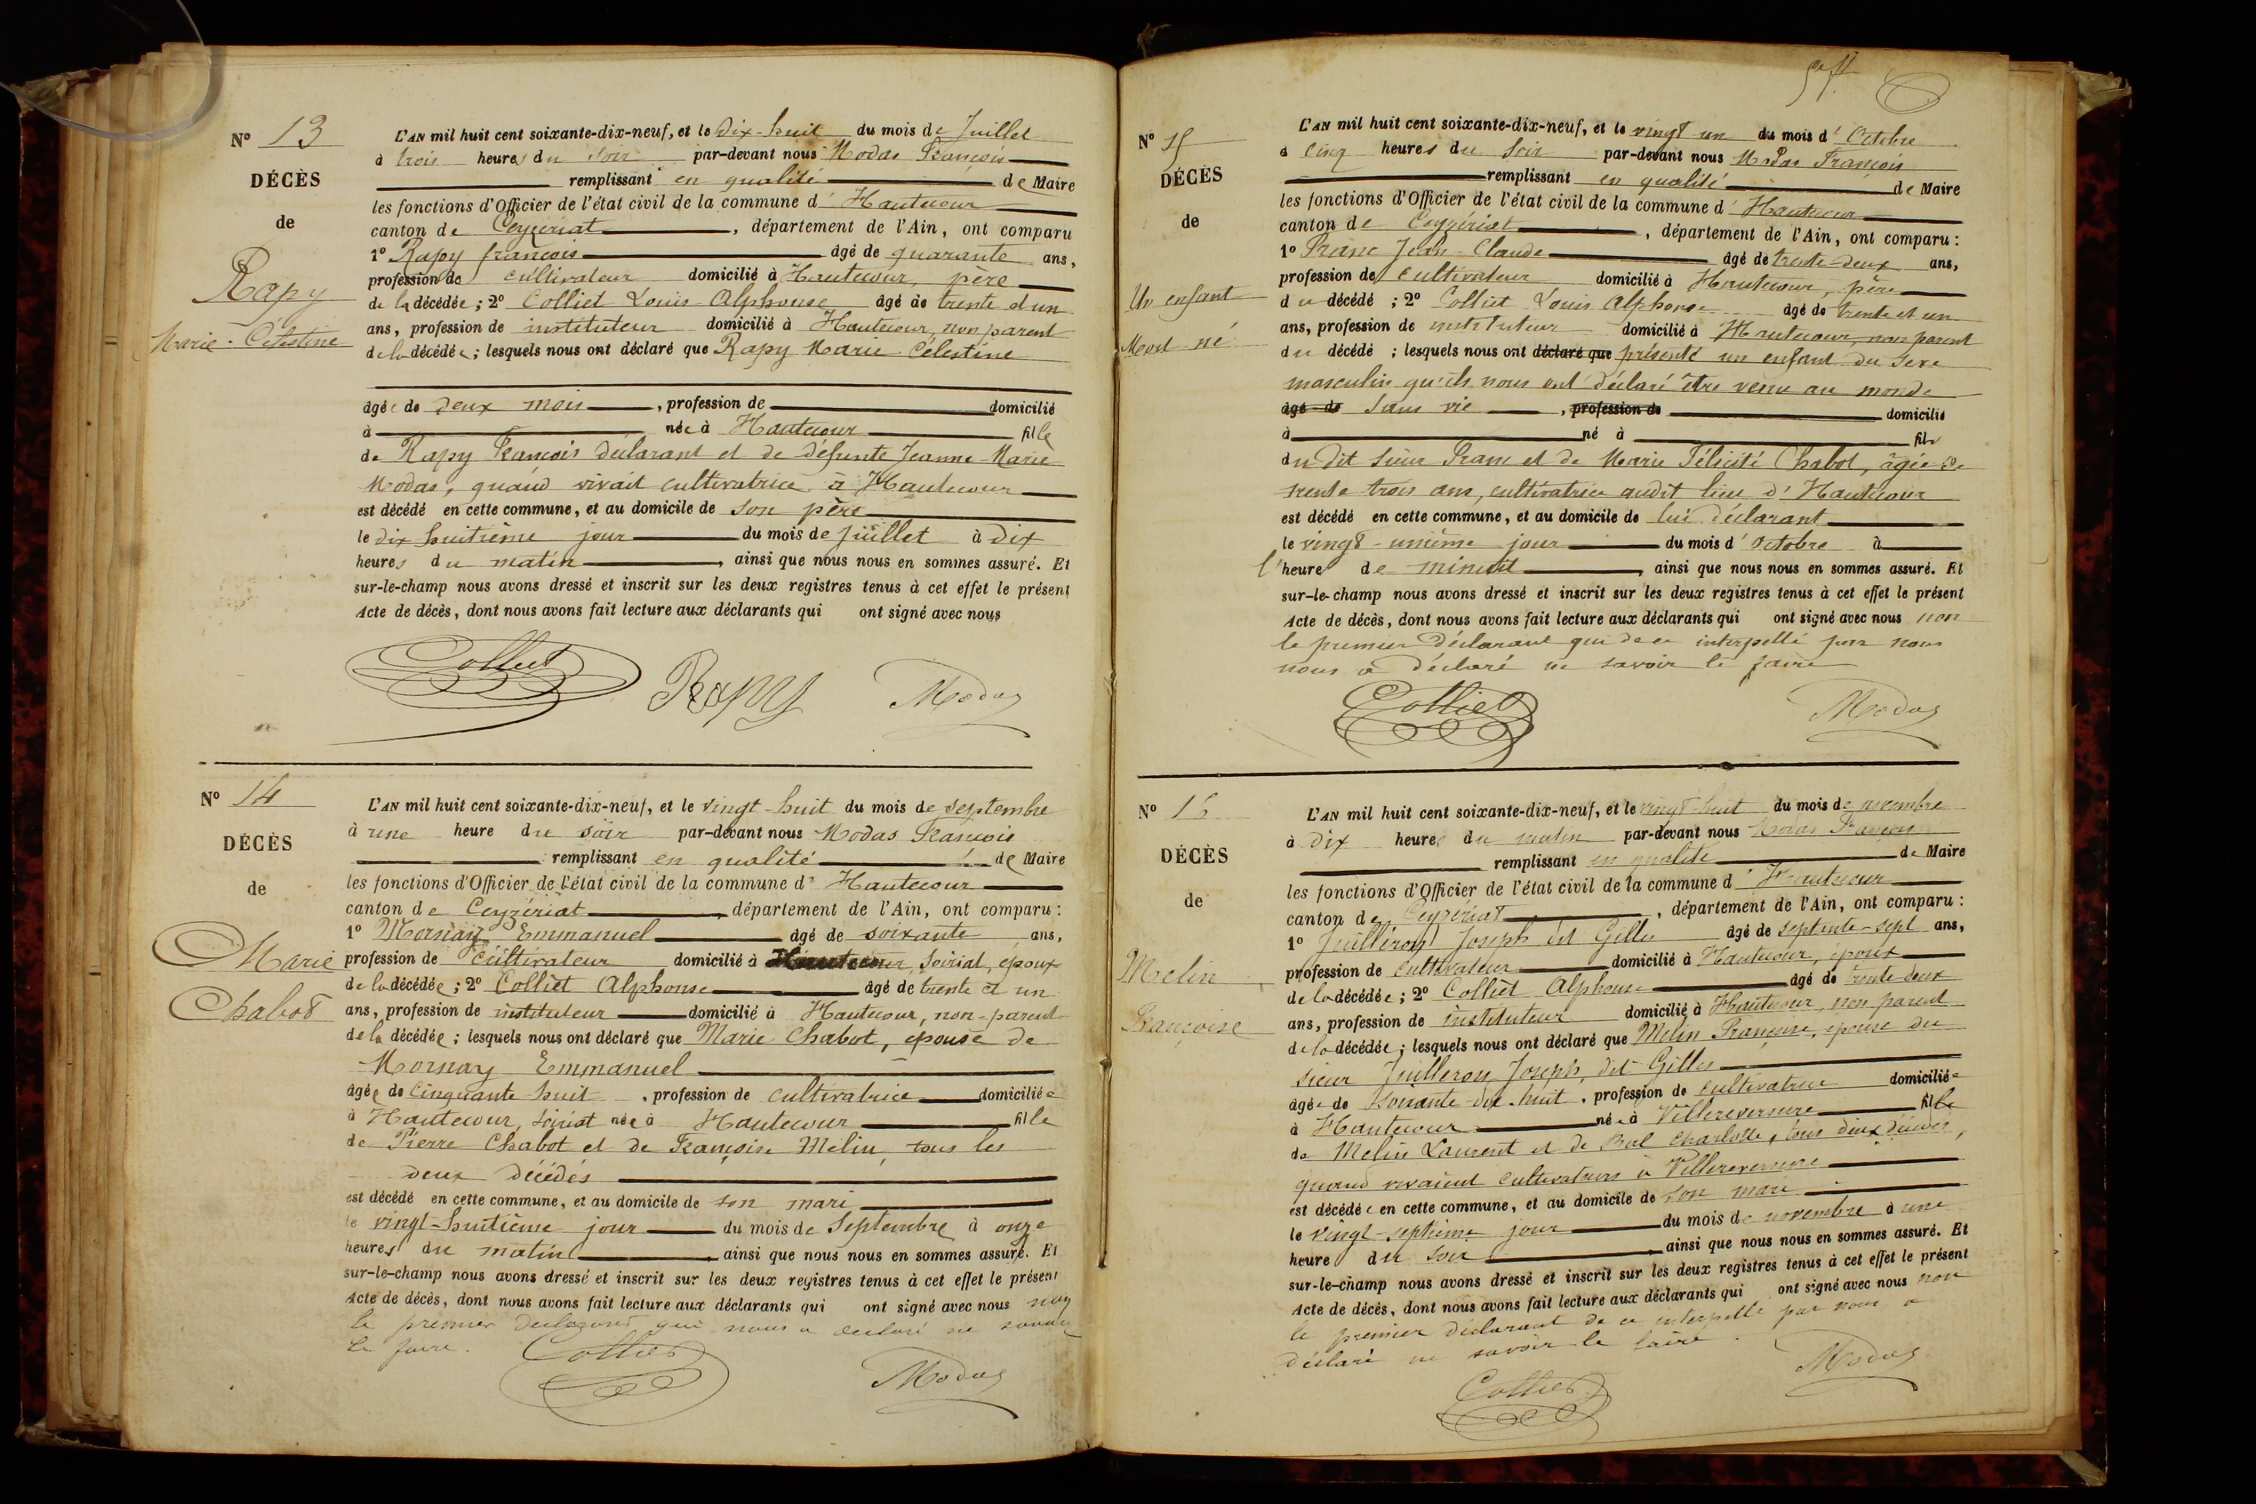 N° 13
DÉCÈS
de
Rapy
Marie-Célestine
L'AN mil huit cent soixante-dix-neuf, et le Dix-huit du mois de Juillet
à trois heures du soir par-devant nous Modas François
remplissant en qualité de Maire
les fonctions d'Officier de l'état civil de la commune d'Hautecour
canton de Ceyzériat, département de l'Ain, ont comparu
1° Rapy françois âgé de quarante ans,
profession de cultivateur domicilié à Hautecour, père
de la décédée; 2° Colliet Louis Alphonse âgé de trente et un
ans, profession de instituteur domicilié à Hautecour, non parent
de la décédée; lesquels nous ont déclaré que Rapy Marie Célestine
âgée de deux mois, profession de domicilié
à née à Hautecour fille
de Rapy François déclarant et de défunte Jeanne Marie
Modas, quand vivait cultivatrice à Hautecour
est décédé en cette commune, et au domicile de son père
le dix huitième jour du mois de Juillet à dix
heures du matin, ainsi que nous nous en sommes assuré. Et
sur-le-champ nous avons dressé et inscrit sur les deux registres tenus à cet effet le présent
Acte de décès, dont nous avons fait lecture aux déclarants qui ont signé avec nous
Colliet Rapy Modas
N° 14
DÉCÈS
de
Marie
Chabot
L'AN mil huit cent soixante-dix-neuf, et le vingt-huit du mois de septembre
à une heure du soir par-devant nous Modas François
remplissant en qualité de Maire
les fonctions d'Officier de l'état civil de la commune d'Hautecour
canton de Ceyzériat, département de l'Ain, ont comparu:
1° Mornay Emmanuel âgé de soixante ans,
profession de cultivateur domicilié à Hautecour, Soiriat, époux
de la décédée; 2° Colliet Alphonse âgé de trente et un
ans, profession de instituteur domicilié à Hautecour, non-parent
de la décédée; lesquels nous ont déclaré que Marie Chabot, épouse de
Mornay Emmanuel
âgée de cinquante huit, profession de cultivatrice domiciliée
à Hautecour, Soiriat née à Hautecour fille
de Pierre Chabot et de Françoise Melin, tous les
deux décédés
est décédé en cette commune, et au domicile de son mari
le vingt-huitième jour du mois de Septembre à onze
heures du matin, ainsi que nous nous en sommes assuré. Et
sur-le-champ nous avons dressé et inscrit sur les deux registres tenus à cet effet le présent
Acte de décès, dont nous avons fait lecture aux déclarants qui ont signé avec nous non
le premier déclarant qui nous a déclaré ne savoir
le faire.
Colliet Modas
N° 15
DÉCÈS
de
Un enfant
Mort né
L'AN mil huit cent soixante-dix-neuf, et le vingt un du mois d'Octobre
à cinq heures du Soir par-devant nous Modas François
remplissant en qualité de Maire
les fonctions d'Officier de l'état civil de la commune d'Hautecour
canton de Ceyzériat, département de l'Ain, ont comparu:
1° Franc Jean-Claude âgé de trente-deux ans,
profession de cultivateur domicilié à Hautecour, père
du décédé; 2° Colliet Louis Alphonse âgé de trente et un
ans, profession de instituteur domicilié à Hautecour, non parent
du décédé; lesquels nous ont déclaré que présenté un enfant du sexe
masculin qu'ils nous ont déclaré être venu au monde
âgé de sans vie, profession de domicilié
à né à fils
du dit sieur Franc et de Marie Félicité Chabot, âgée de
trente trois ans, cultivatrice audit lieu d'Hautecour
est décédé en cette commune, et au domicile de lui déclarant
le vingt-unième jour du mois d'octobre à
l'heure de minuit, ainsi que nous nous en sommes assuré. Et
sur-le-champ nous avons dressé et inscrit sur les deux registres tenus à cet effet le présent
Acte de décès, dont nous avons fait lecture aux déclarants qui ont signé avec nous non
le premier déclarant qui de ce interpellé par nous
nous a déclaré ne savoir le faire
Colliet Modas
N° 16
DÉCÈS
de
Melin
Françoise
L'AN mil huit cent soixante-dix-neuf, et le vingt-huit du mois de novembre
à dix heures du matin par-devant nous Modas François
remplissant en qualité de Maire
les fonctions d'Officier de l'état civil de la commune d'Hautecour
canton de Ceyzériat, département de l'Ain, ont comparu:
1° Juilleron Joseph dit Gilles âgé de septente-sept ans,
profession de cultivateur domicilié à Hautecour, époux
de la décédée; 2° Colliet Alphonse âgé de trente-deux
ans, profession de instituteur domicilié à Hautecour, non parent
de la décédée; lesquels nous ont déclaré que Melin Françoise, épouse du
sieur Juilleron Joseph, dit Gilles
âgée de soixante-dix-huit, profession de cultivatrice domiciliée
à Hautecour née à Villereversure fille
de Melin Laurent et de Bal Charlotte, tous deux décédés,
quand vivaient cultivateurs à Villereversure
est décédée en cette commune, et au domicile de son mari
le vingt-septième jour du mois de novembre à une
heure du soir, ainsi que nous nous en sommes assuré. Et
sur-le-champ nous avons dressé et inscrit sur les deux registres tenus à cet effet le présent
Acte de décès, dont nous avons fait lecture aux déclarants qui ont signé avec nous non
le premier déclarant de ce interpellé par nous a
déclaré ne savoir le faire.
Colliet Modas